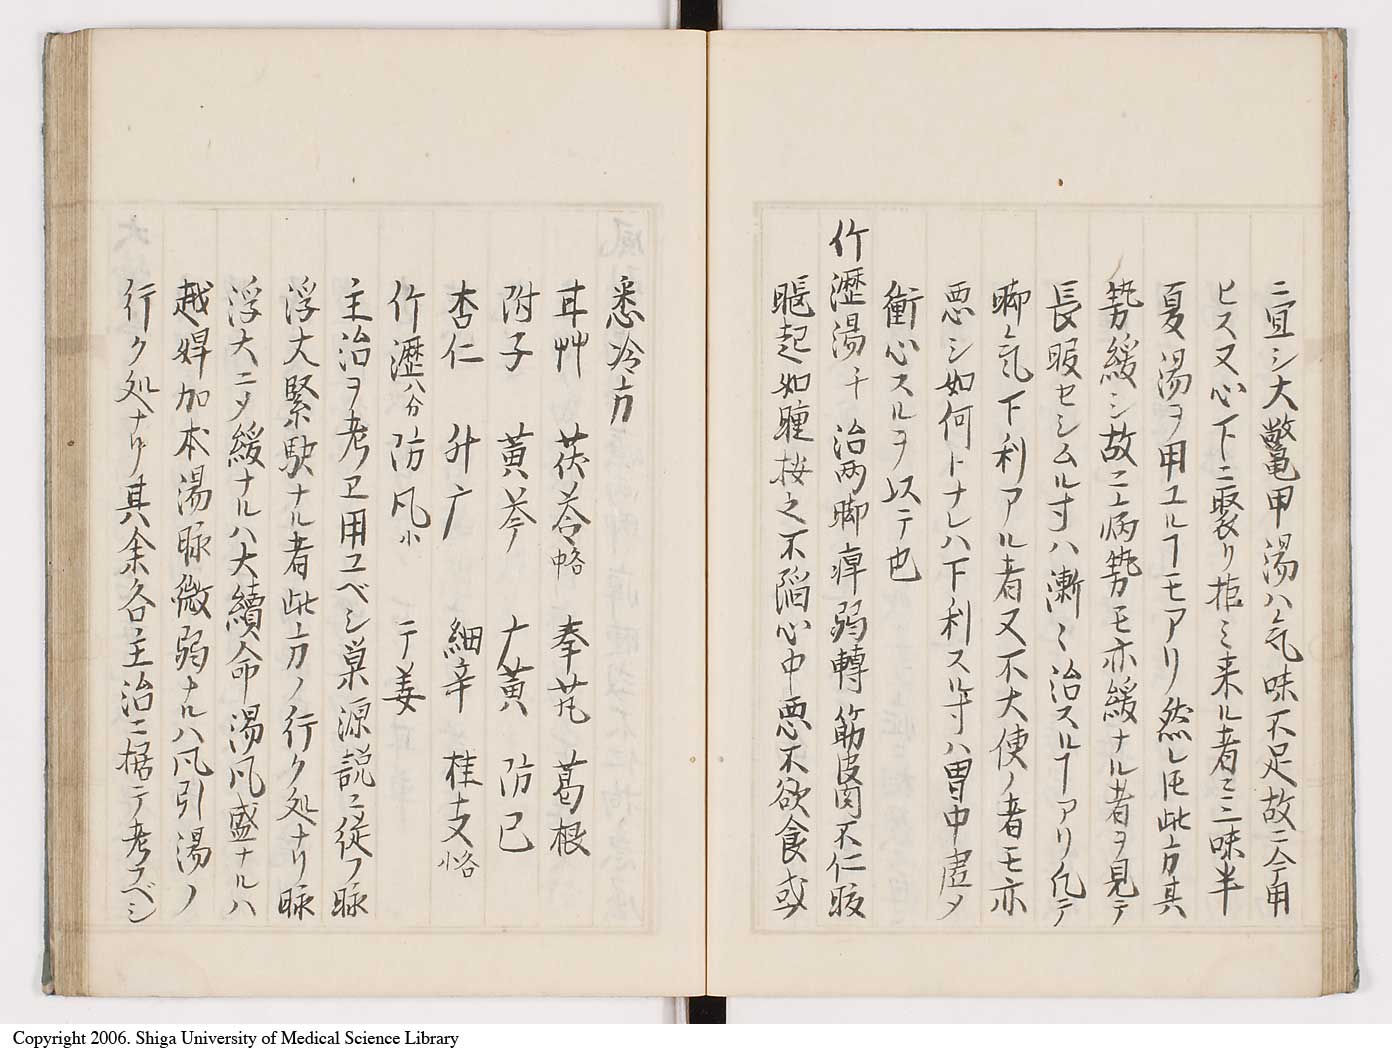 ニ宜シ大鼈甲湯ハ気味不足故ニ今用
ヒス又心下ニ聚リ拒ミ来ル者ニ三味半
夏湯ヲ用ユルヿモアリ然レ𪜈此方其
勢緩シ故ニ上病勢モ亦緩ナル者ヲ見テ
長服セシムル寸ハ漸〻治スルヿアリ凡テ
脚気下利アル者又不大便ノ者モ亦
悪シ如何トナレハ下利スル寸ハ胃中虚メ
衝心スルヲ以テ也
竹瀝湯 千 治両脚痺弱轉筋皮肉不仁腹
脹起如腫按之不陥心中悪不欲食或
悉冷方
甘艸 茯苓 中略 秦艽 葛根
附子 黄芩 广黄 防已
杏仁 升广 細辛 桂支 小略
竹瀝 八分 防風 小 干姜
主治ヲ考ヱ用ユベシ巣源説ニ従フ脉
浮大緊駃ナル者此方ノ行ク処ナリ脉
浮大ニメ緩ナルハ大續命湯凡盛ナルハ
越婢加本湯脉微弱ナルハ凡引湯ノ
行ク処ナリ其余各主治ニ據テ考フベシ
Copyright 2006. Shiga University of Medical Science Library